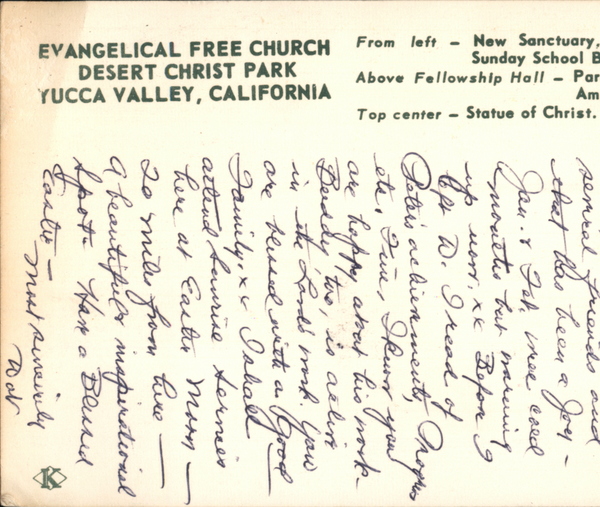 EVANGELICAL FREE CHURCH
DESERT CHRIST PARK
YUCCA VALLEY, CALIFORNIA
From left — New Sanctuary,
Sunday School B
Above Fellowship Hall — Par
Am
Top center — Statue of Christ.
several friends and
that has been a Joy —
Jan. & Feb. were cold
months but warming
up now. xx Before I
left D. I read of
Peter's achievements, Progress
etc. Fine, I know you
are happy about his work.
Buddy too, is active
in the Lord's work. You
are blessed with a good
Family. xx I shall
attend Sunrise Services
here at Easter Morn —
20 miles from here —
A beautiful & inspirational
spot. Have a Blessed
Easter — Most sincerely
Dot
K